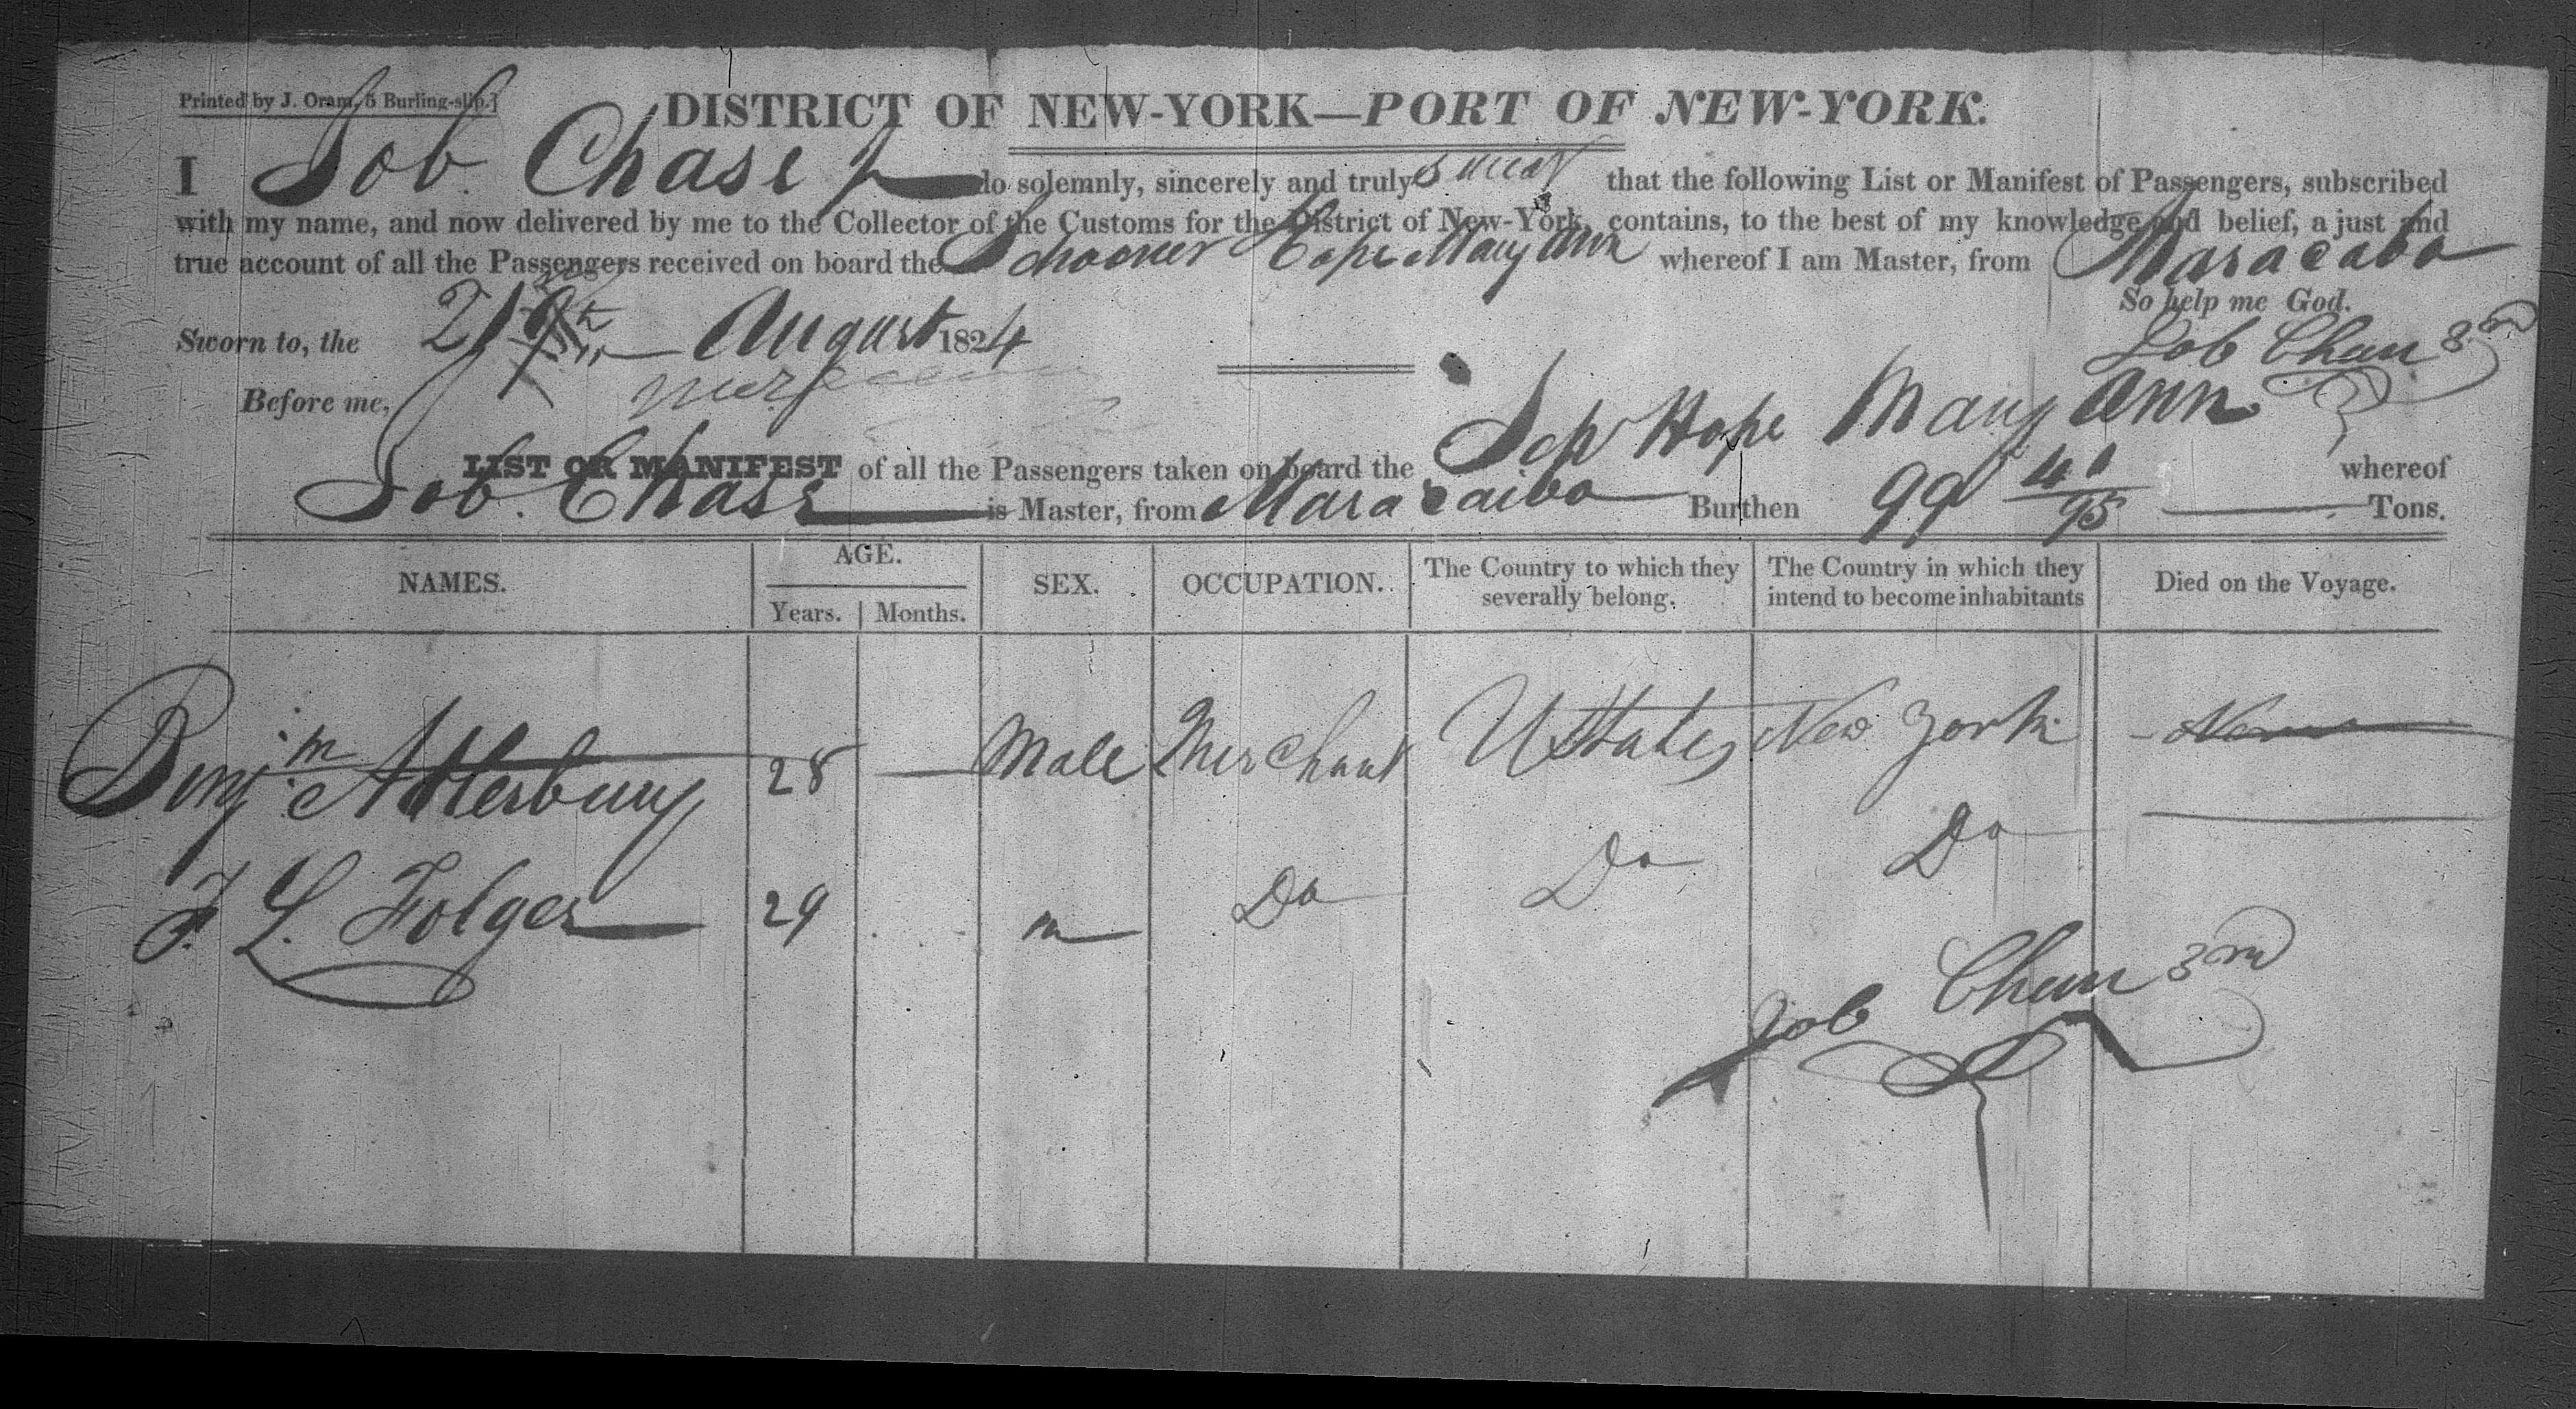 Printed by J. Oram, 5 Burling-slip.]
DISTRICT OF NEW-YORK—PORT OF NEW-YORK.
I Job Chase do solemnly, sincerely and truly swear that the following List or Manifest of Passengers, subscribed
with my name, and now delivered by me to the Collector of the Customs for the District of New-York, contains, to the best of my knowledge and belief, a just and
true account of all the Passengers received on board the Schooner Hope Mary Ann whereof I am Master, from Maracabo
So help me God.
Sworn to, the 21 August 1824
Job Chase 3rd
Before me,
LIST OR MANIFEST of all the Passengers taken on board the Schr Hope Mary Ann whereof
Job. Chase is Master, from Maracaibo Burthen 99 41/95 Tons.
NAMES. AGE. Years. Months. SEX. OCCUPATION. The Country to which they severally belong. The Country in which they intend to become inhabitants Died on the Voyage.
Benjm Atterbury 28 — Male Merchant UStates New York None
F. L. Folger 29 m Do Do Do
Job Chase 3rd